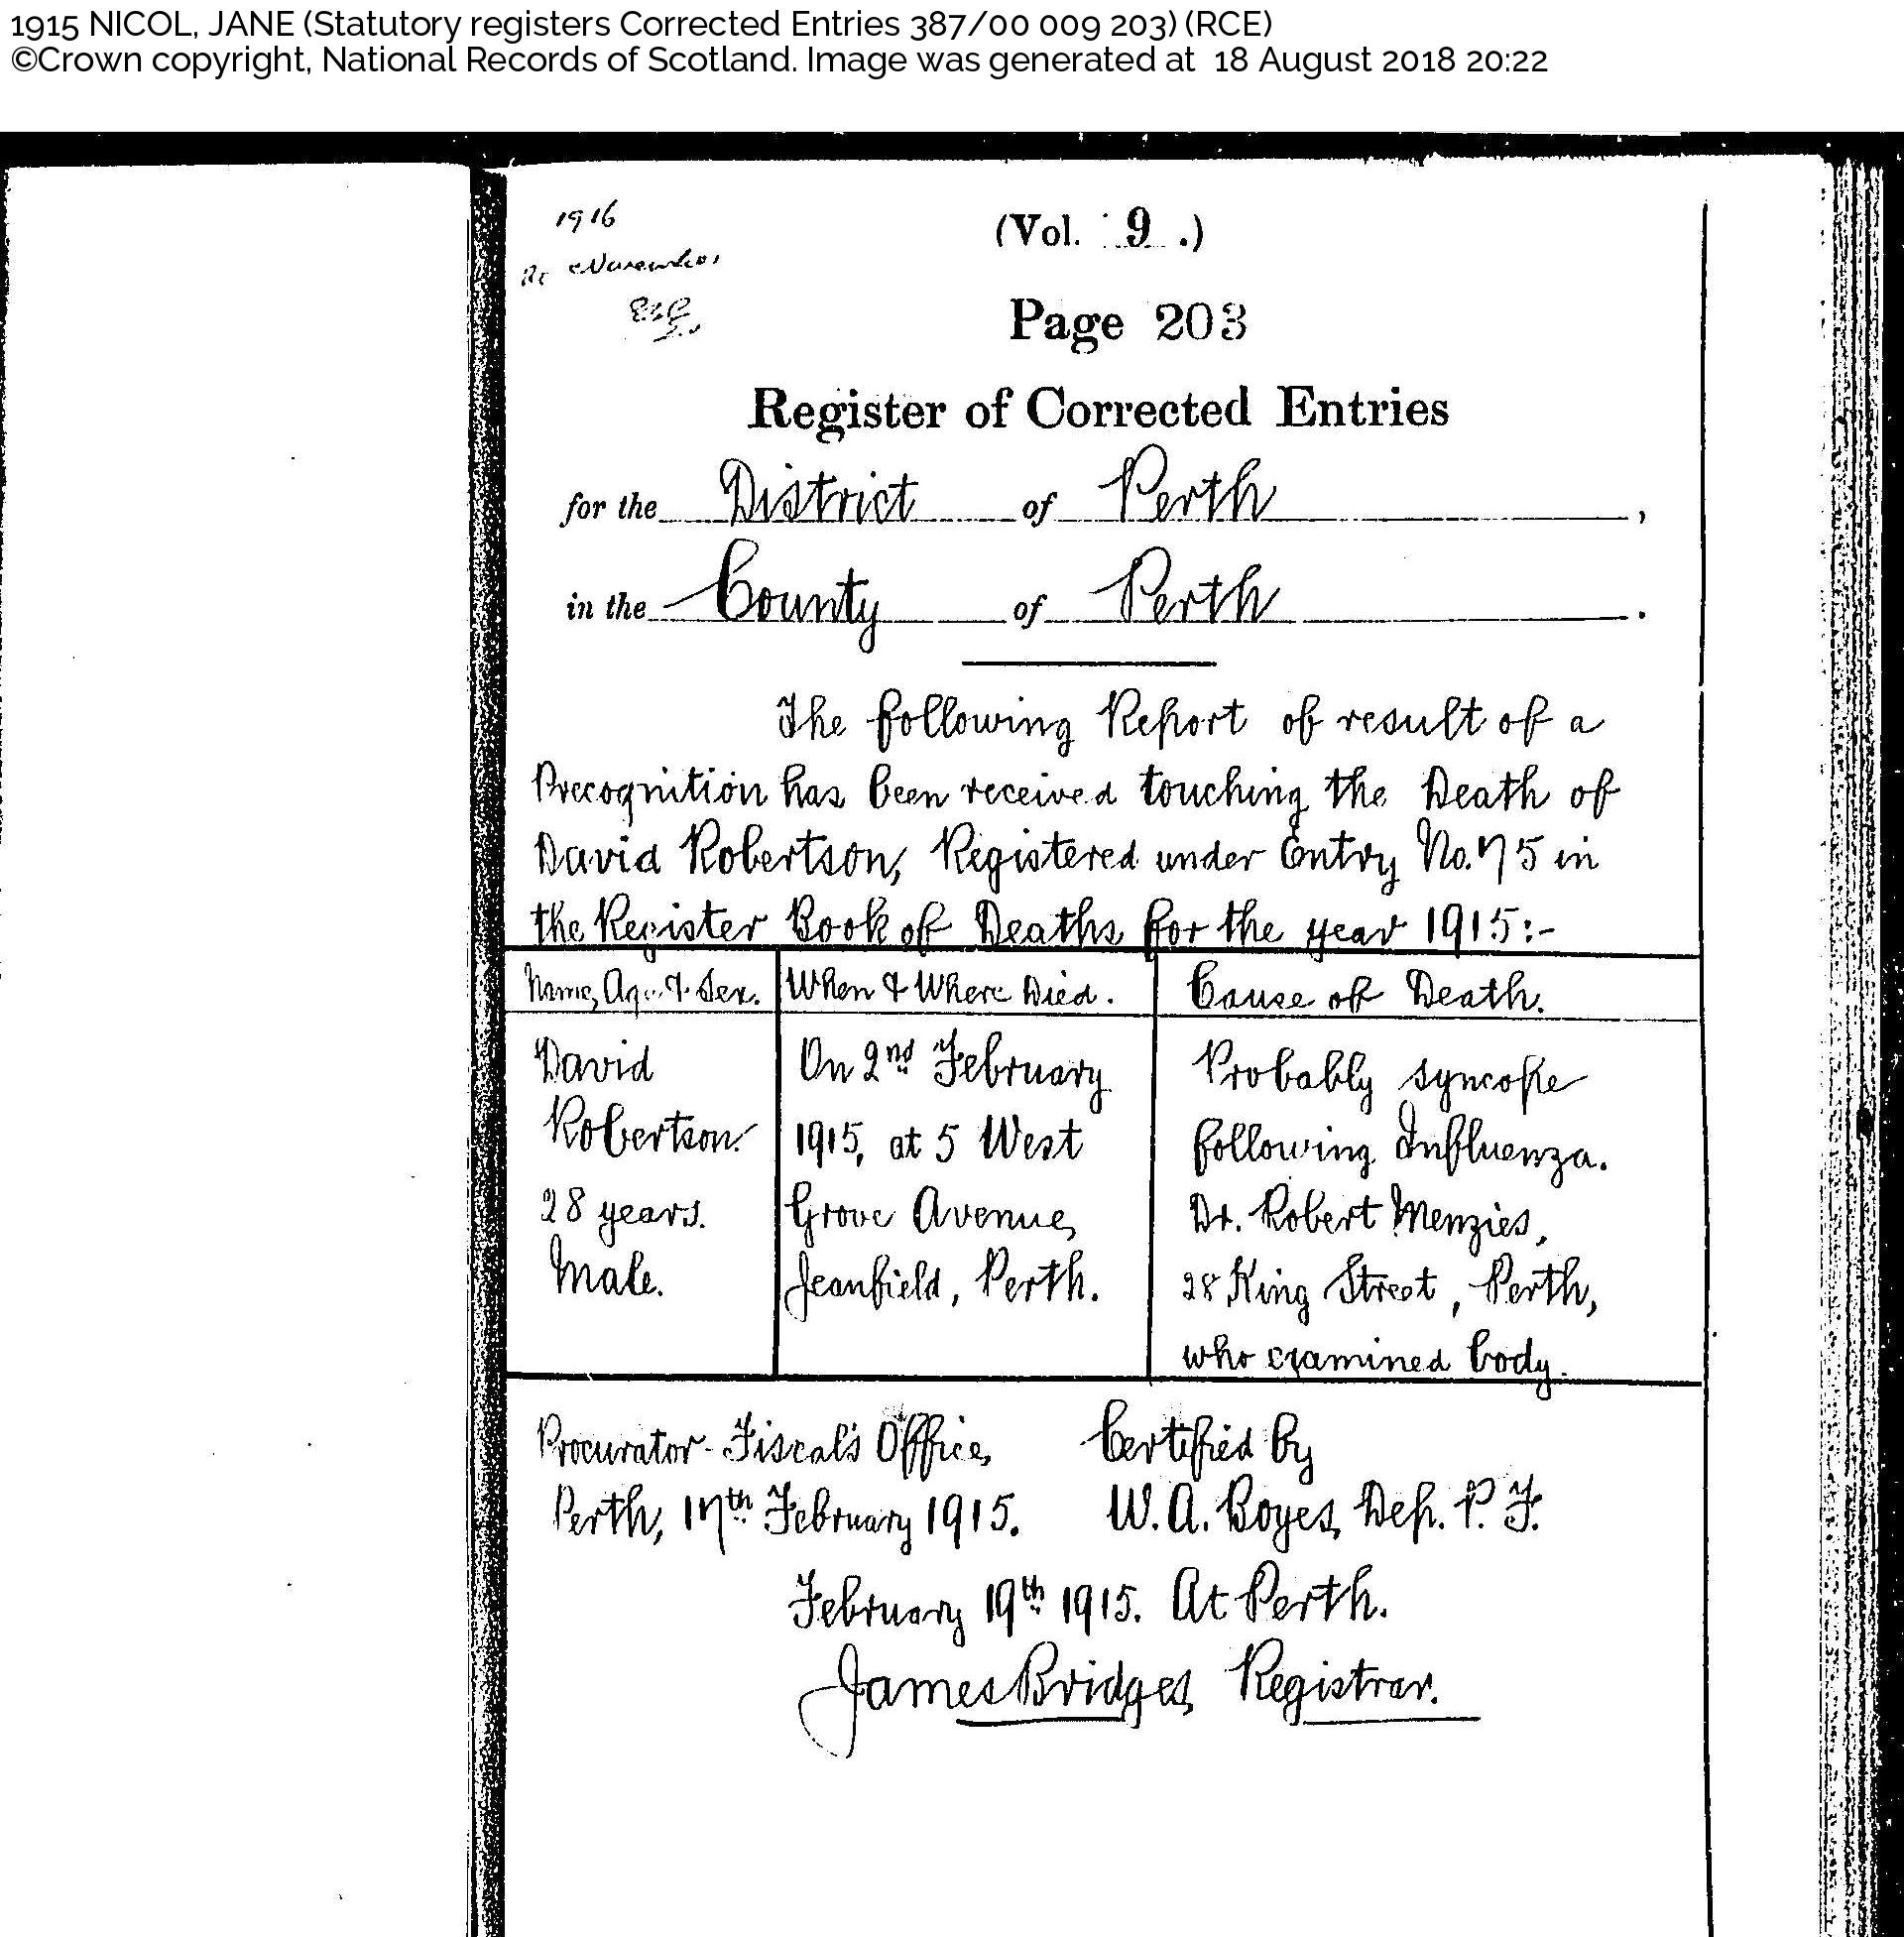 1915 NICOL, JANE (Statutory registers Corrected Entries 387/00 009 203) (RCE)
©Crown copyright, National Records of Scotland. Image was generated at 18 August 2018 20:22
1916
(Vol. 9 .)
November
Page 203
Register of Corrected Entries
for the District of Perth,
in the County of Perth.
The following Report of result of a
Precognition has been received touching the Death of
David Robertson, Registered under Entry No. 75 in
the Register Book of Deaths for the year 1915:-
Name, Age & Sex. When & Where Died. Cause of Death.
David On 2nd February Probably syncope
Robertson. 1915, at 5 West following Influenza.
28 years. Grove Avenue, Dr. Robert Menzies,
Male. Jeanfield, Perth. 28 King Street, Perth,
who examined body.
Procurator-Fiscal's Office, Certified by
Perth, 17th February 1915. W. A. Boyes, Dep. P. F.
February 19th 1915. At Perth.
James Bridges, Registrar.